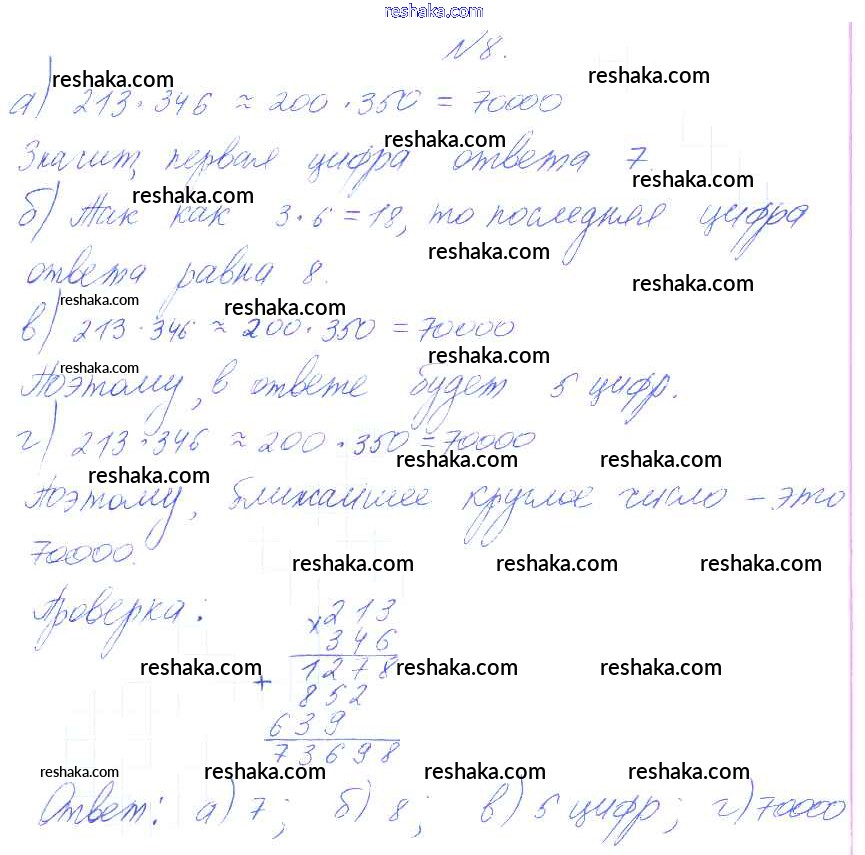 reshaka.com
№ 8.
reshaka.com reshaka.com
а) 213 · 346 ≈ 200 · 350 = 70000
reshaka.com
Значит, первая цифра ответа 7.
reshaka.com reshaka.com
б) Так как 3 · 6 = 18, то последняя цифра
reshaka.com
ответа равна 8.
reshaka.com
reshaka.com reshaka.com
в) 213 · 346 ≈ 200 · 350 = 70000
reshaka.com
reshaka.com
Поэтому, в ответе будет 5 цифр.
г) 213 · 346 ≈ 200 · 350 = 70000
reshaka.com reshaka.com
reshaka.com
Поэтому, ближайшее круглое число – это
70000.
reshaka.com reshaka.com reshaka.com
Проверка:
× 213
346
reshaka.com reshaka.com reshaka.com
1278
+
852
639
73698
reshaka.com reshaka.com reshaka.com reshaka.com
Ответ: а) 7; б) 8; в) 5 цифр; г) 70000